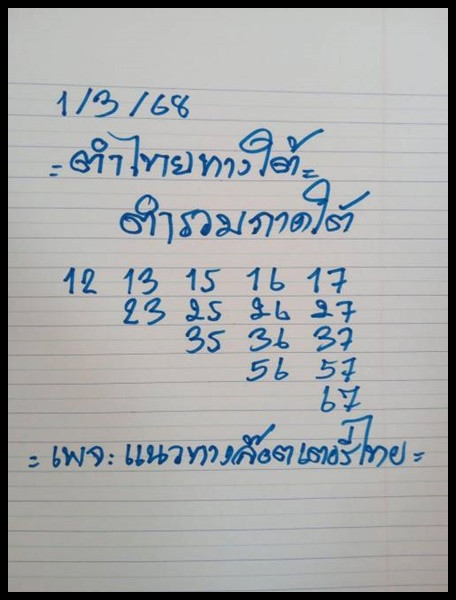 1/3/68
= ตำไทยทางใต้ =
ตำรวมภาคใต้
12 13 15 16 17
23 25 26 27
35 36 37
56 57
67
= เพจ: แนวทางล๊อตเตอรี่ไทย =